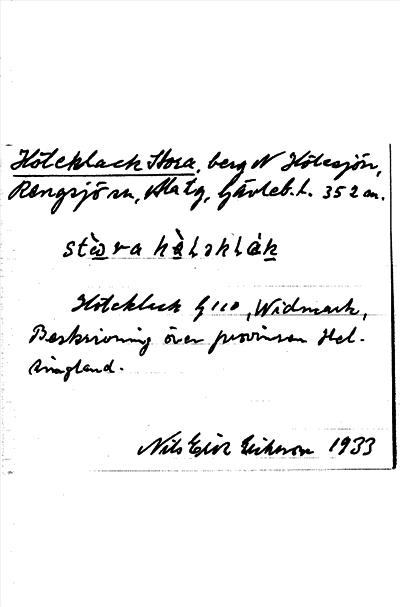 Höleklack Stora, berg N Hölesjön,
Rengsjö sn, Gävleb. l. 352 m.
Höleklack G 110, Widmark,
Beskrivning över provinsen Hel-
singland.
Nils Eriksson 1933